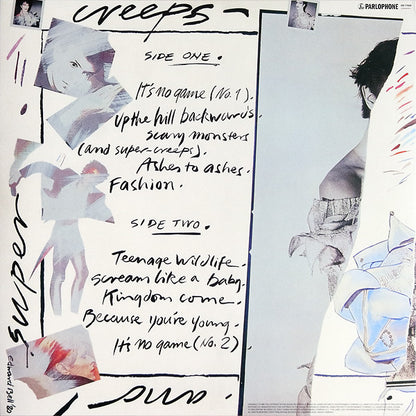 creeps
PARLOPHONE
SIDE ONE.
It's no game (No. 1).
Up the hill backwards.
scary monsters
(and super-creeps).
Ashes to ashes.
Fashion.
SIDE TWO.
Teenage Wildlife.
scream like a baby.
Kingdom come.
Because you're young.
It's no game (No. 2)
super
and
Edward Bell '80